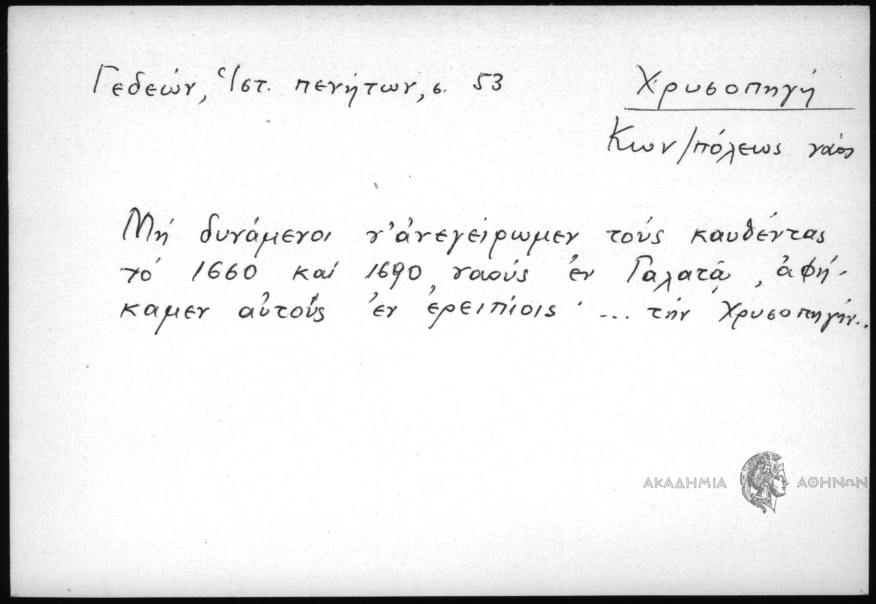 Γεδεών, Ἱστ. πενήτων, σ. 53
Χρυσοπηγή
Κων/πόλεως ναός
Μή δυνάμενοι ν' ἀνεγείρωμεν τούς καυθέντας
τό 1660 καί 1690 ναούς ἐν Γαλατᾷ, ἀφή-
καμεν αὐτούς ἐν ἐρειπίοις · ... τήν Χρυσοπηγήν..
ΑΚΑΔΗΜΙΑ ΑΘΗΝΩΝ